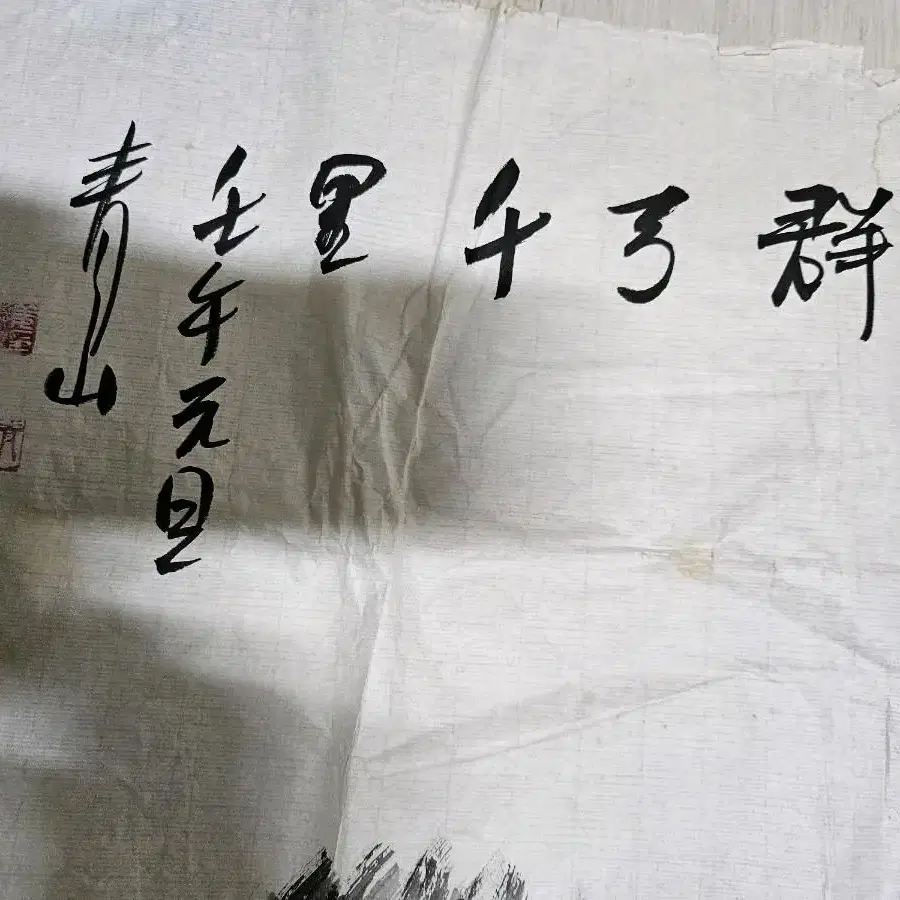 群马千里
壬午元旦
青山